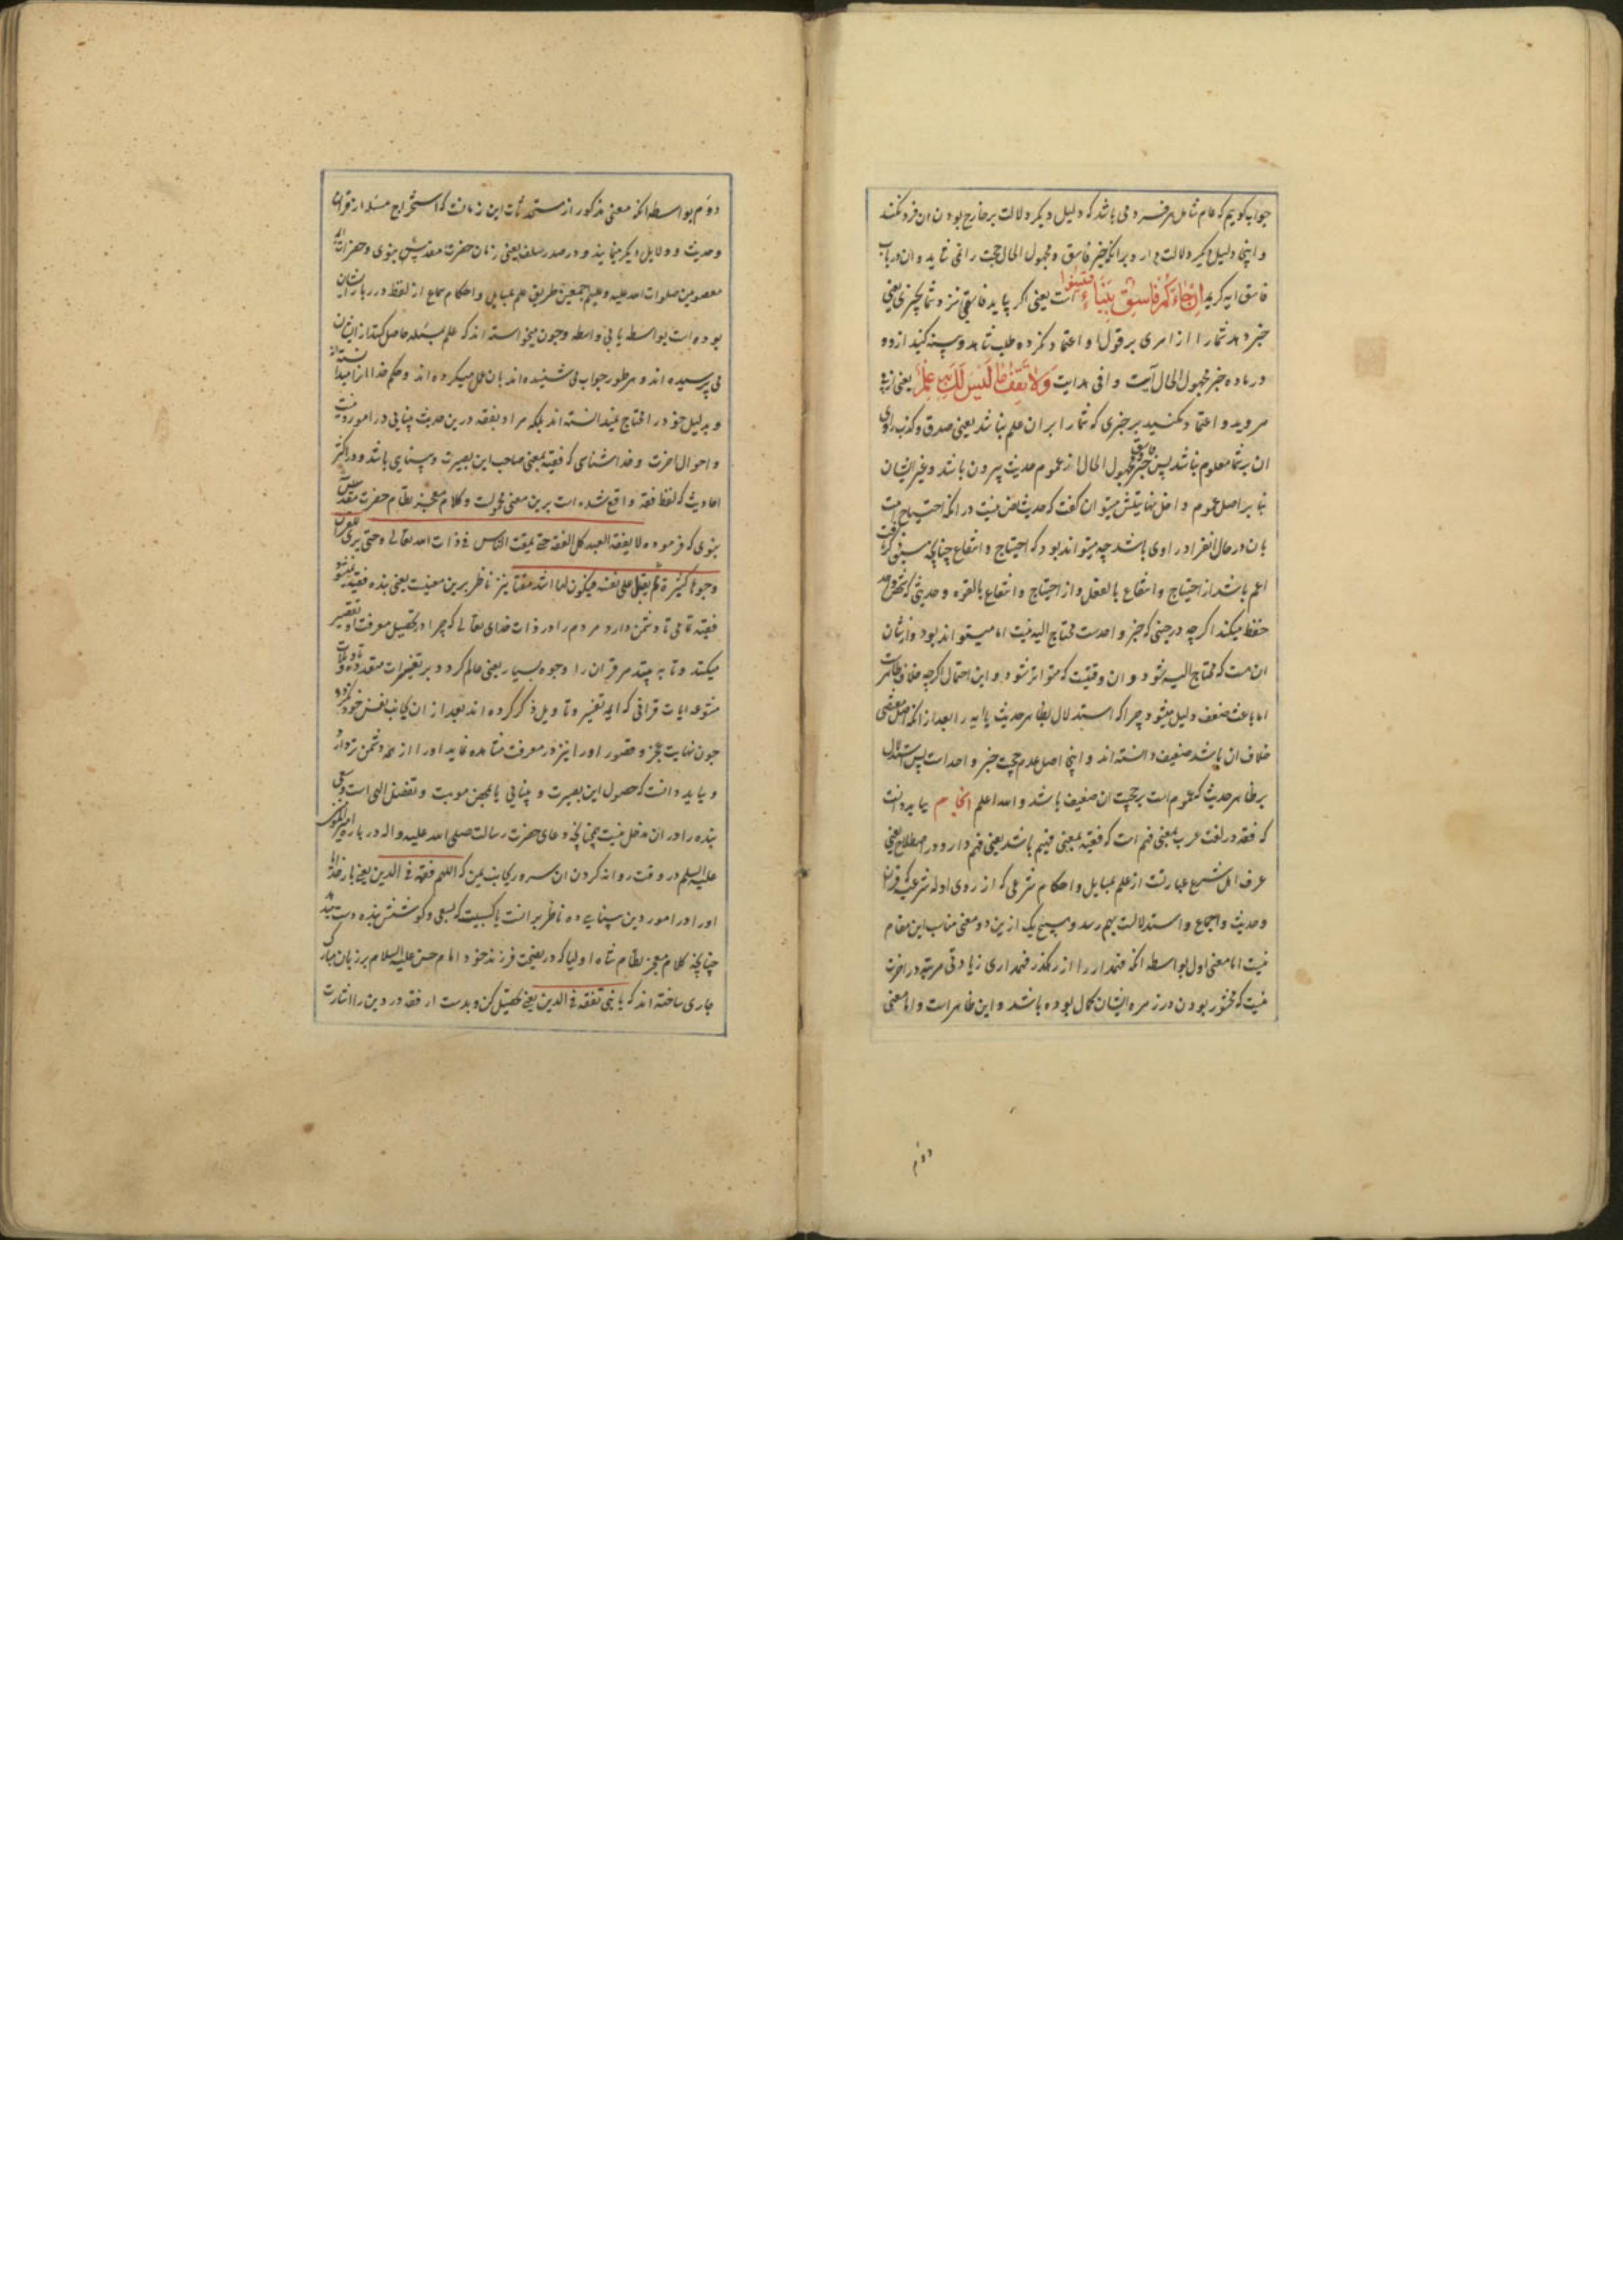 جواب کویم که عام شامل هر فرد می باشد که دلیل دیکر دلالت بر خارج بودن ان فرد نکند
و اینجا دلیل دیکر دلالت دارد بر انکه خبر فاسق و مجهول الحال حجت را نمی شاید و ان در باب
فاسق ایه کریمه ان جاءکم فاسق بنباء فتبینوا است یعنی اکر بیاید فاسقی نزد شما بخبری یعنی
خبر دهد شما را از امری بر قول او اعتماد نکرده طلب شاهد و بینه کنید از و و
در ماده خبر مجهول الحال آیت وافی هدایت ولا تقف ما لیس لک به علم یعنی از پی
مروید و اعتماد مکنید بر خبری که شما را بر ان علم نباشد یعنی صدق و کذب راوی
ان بر شما معلوم نباشد پس خبر فاسق و مجهول الحال از عموم حدیث بیرون باشد و غیر ایشان
بنا بر اصل عموم داخل نهایتش میتوان کفت که حدیث نص نیست در انکه احتیاج است
بان در حال انفراد راوی باشد چه میتواند بود که احتیاج و انتفاع چنانچه سبق ذکر یافت
اعم باشد از احتیاج و انتفاع بالفعل و از احتیاج و انتفاع بالقوه و حدیثی که شخص واحد
حفظ میکند اکرچه در حینی که خبر واحدست محتاج الیه نیست اما میتواند بود و از شان
ان هست که محتاج الیه شود و ان وقتیست که متواتر شود و این احتمال اکرچه خلاف ظاهرست
اما باعث ضعف دلیل میشود چرا که استدلال بظاهر حدیث یا ایه را بعد از انکه اصل مقتضی
خلاف ان باشد ضعیف دانسته اند و اینجا اصل عدم حجیت خبر واحد است پس استدلال
بر ظاهر حدیث که عموم است بر حجیت ان ضعیف باشد والله اعلم بباید دانست
که فقه در لغت عرب بمعنی فهم است که فقیه بمعنی فهیم باشد یعنی فهم دار و در اصطلاح یعنی
عرف اهل شرع عبارتست از علم بمسایل و احکام شرعی که از روی ادله شرعیه که قران
و حدیث و اجماع و استدلالست بهم رسد و هیچ یک ازین دو معنی مناسب این مقام
نیست اما معنی اول بواسطه انکه فهمدار را از رهکذر فهمداری زیادتی مرتبه در اخرت
نیست که محشور بودن در زمره ایشان کمال بوده باشد و این ظاهر است و اما معنی
دوم
دوم بواسطه انکه معنی مذکور از مستحدثات این زمانست که استخراج مسئله از قران
و حدیث و دلایل دیکر مینمایند و در صدر سلف یعنی زمان حضرت مقدس نبوی و حضرات ائمه
معصومین صلوات الله علیه و علیهم اجمعین طریق علم بمسایل و احکام سماع از لفظ درربار ایشان
بوده است بواسطه یا بی واسطه و چون میخواسته اند که علم بمسئله حاصل کنند از ایشان
می پرسیده اند و هر طور جواب می شنیده اند بان عمل میکرده اند و حکم خدا انرا میدانسته اند
و بدلیل خود را محتاج نمیدانسته اند بلکه مراد بفقه درین حدیث بینایی در امور دینست
و احوال اخرت و خداشناسی که فقیه بمعنی صاحب این بصیرت و بینایی باشد و در اکثر
احادیث که لفظ فقه واقع شده است برین معنی محمولست و کلام معجز نظام حضرت مقدس
نبوی که فرموده لا یفقه العبد کل الفقه حتی یمقت الناس فی ذات الله تعالی و حتی یری للقران
وجوها کثیرة ثم یقبل علی نفسه فیکون لها اشد مقتا نیز ناظر برین معنیست یعنی بنده فقیه نمیشود
فقیه تمامی تا دشمن دارد مردم را در ذات خدای تعالی که چرا در تحصیل معرفت او تقصیر
میکنند و تا به بیند مر قران را وجوه بسیار یعنی عالم کردد بر تفسیرات متعدده و تاویلات
متنوعه ایات قرانی که ایمه تفسیر و تاویل ذکر کرده اند بعد از ان بجانب نفس خود نکرد
چون نهایت عجز و قصور او را نیز در معرفت مشاهده نماید او را از همه دشمن تر دارد
و بباید دانست که حصول این بصیرت و بینایی یا بمحض موهبت و تفضل الهی است و سعی
بنده را در ان مدخل نیست چنانچه دعای حضرت رسالت صلی الله علیه واله درباره امیرالمومنین
علیه السلم در وقت روانه کردن ان سرور بجانب یمن که اللهم فقهه فی الدین یعنی بار خدایا
او را در امور دین بینایی ده ناظر برانست یا کسبیست که بسعی و کوشش بنده دست میدهد
چنانچه کلام معجز نظام شاه اولیا که در نصیحت فرزند خود امام حسن علیه السلام بر زبان مبارک
جاری ساخته اند که یا بنی تفقه فی الدین یعنی تحصیل کن و بدست ار فقه در دین را اشارت